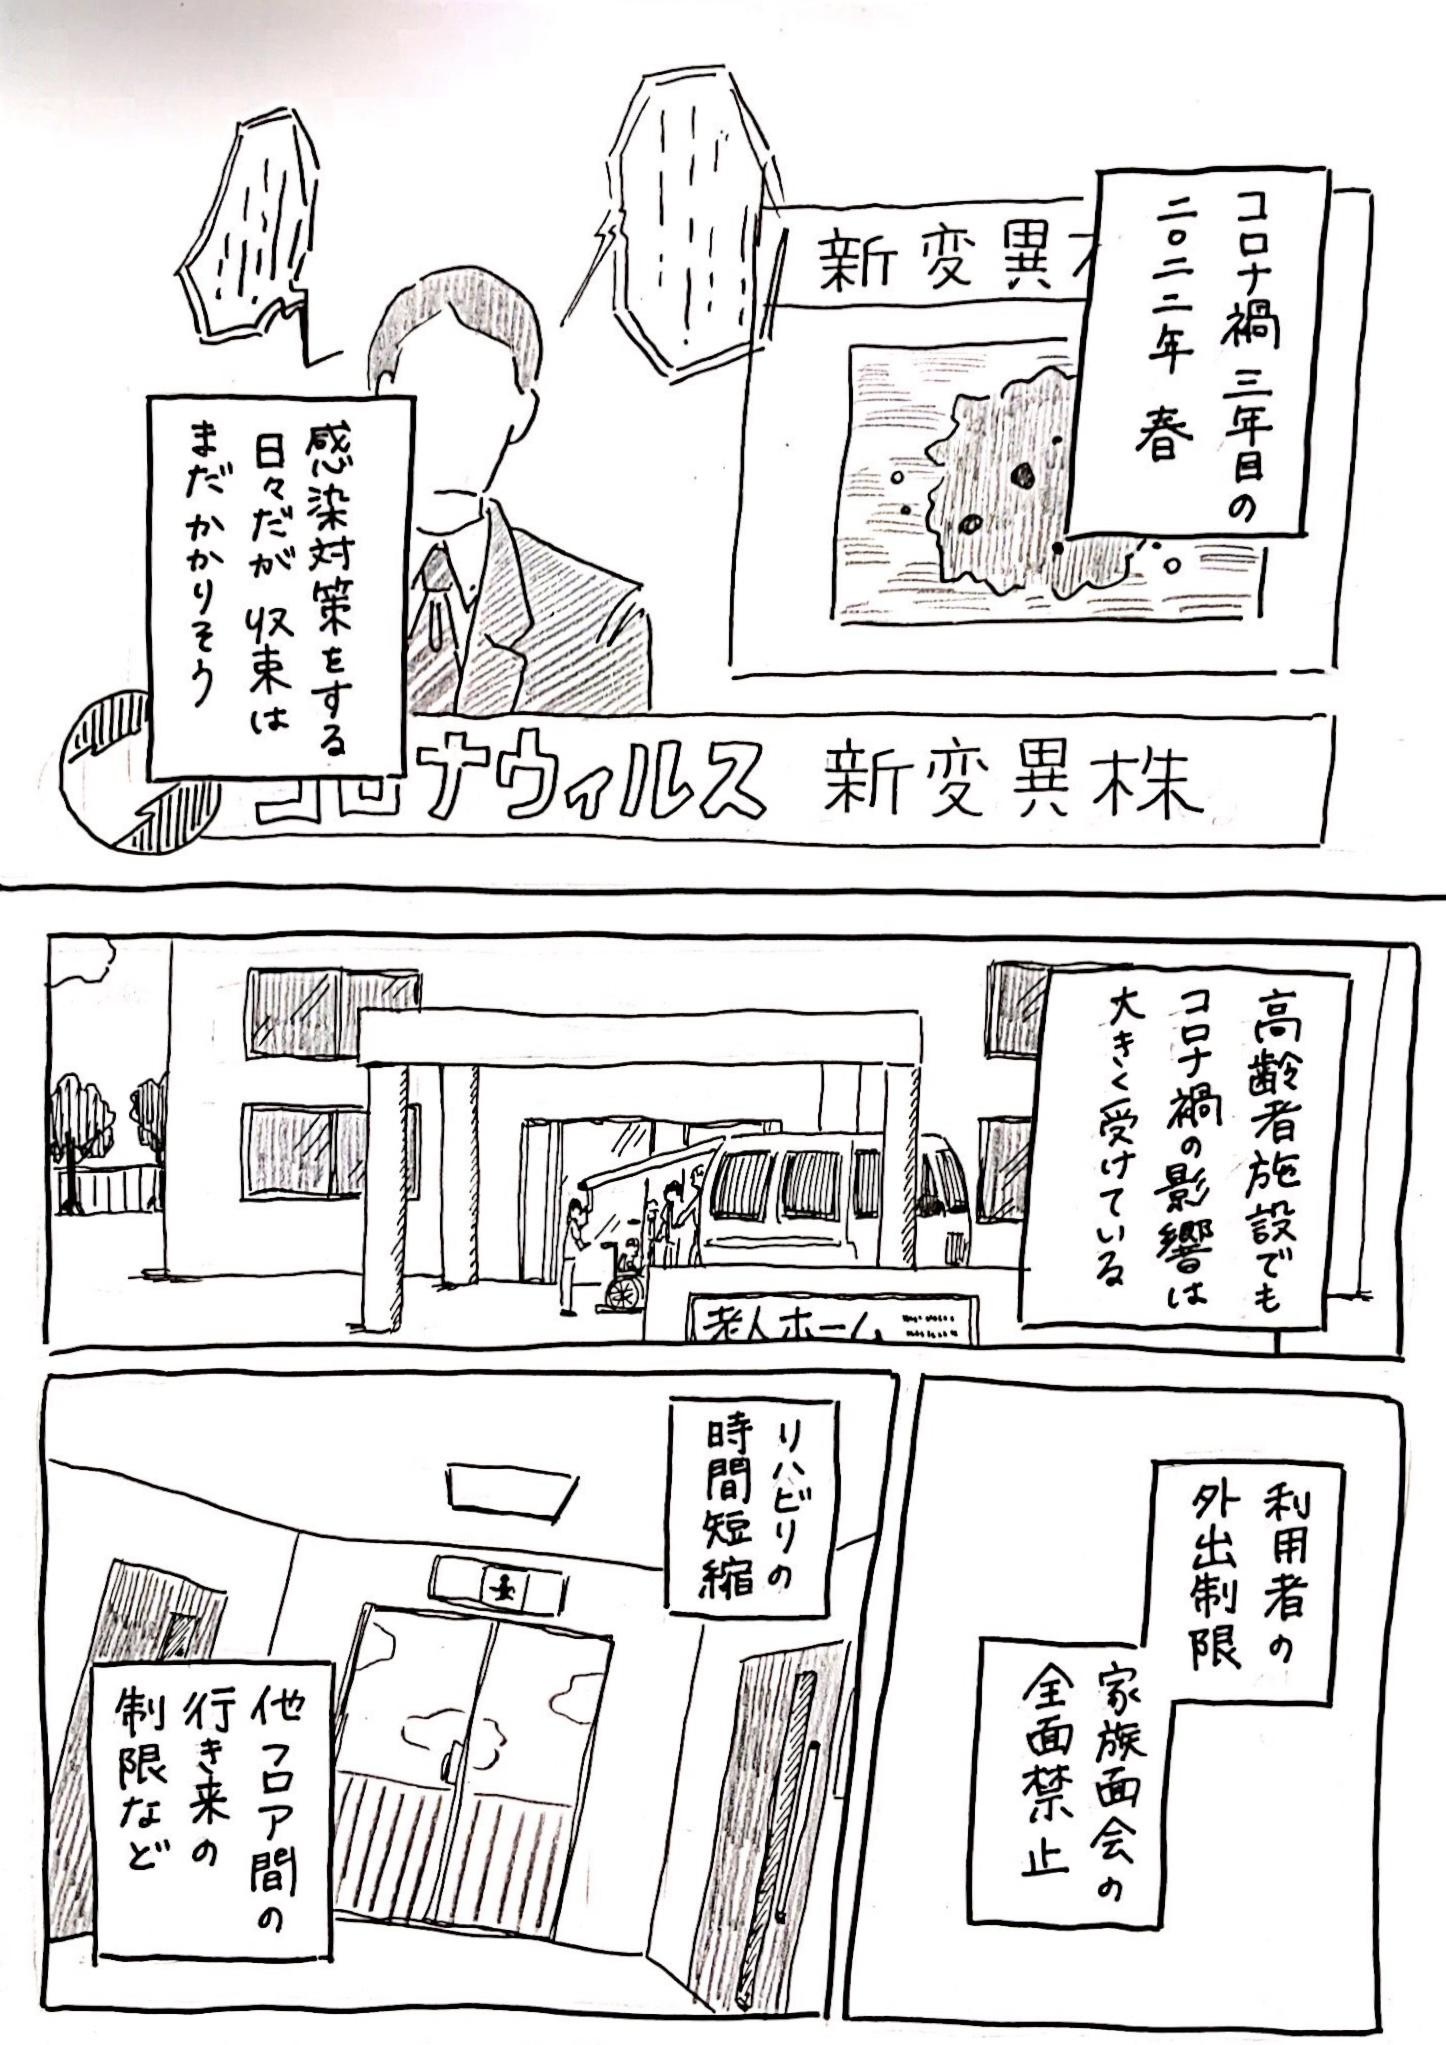 コロナ禍 三年目の
二〇二二年 春
新変異
感染対策をする
日々だが 収束は
まだかかりそう
コロナウィルス 新変異株
高齢者施設でも
コロナ禍の影響は
大きく受けている
老人ホーム
利用者の
外出制限
家族面会の
全面禁止
リハビリの
時間短縮
他フロア間の
行き来の
制限など